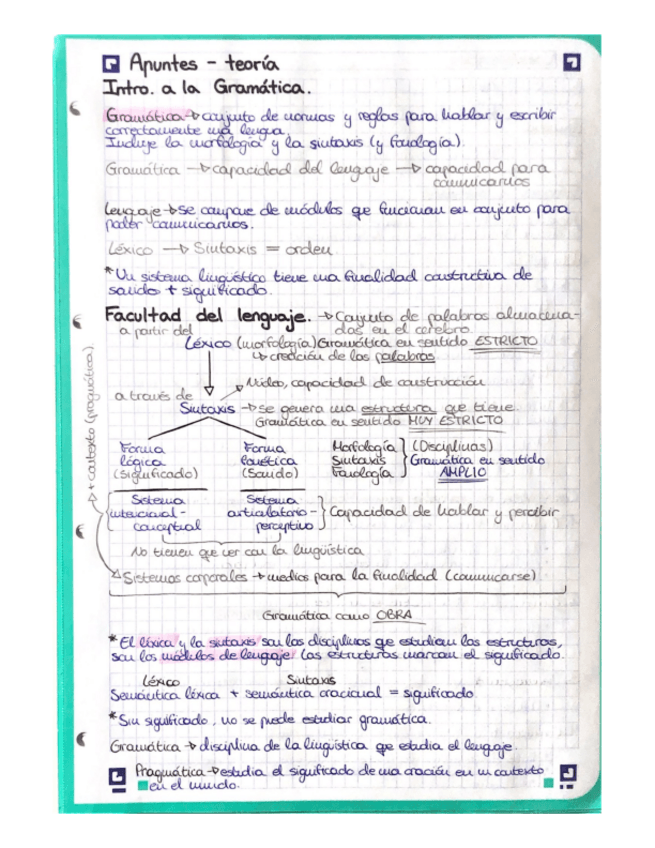 Apuntes - teoría
Intro. a la Gramática.
Gramática → conjunto de normas y reglas para hablar y escribir
correctamente una lengua.
Incluye la morfología y la sintaxis (y fonología).
Gramática → capacidad del lenguaje → capacidad para
comunicarnos
Lenguaje → se compone de módulos que funcionan en conjunto para
poder comunicarnos.
Léxico → Sintaxis = orden.
*Un sistema lingüístico tiene una finalidad constructiva de
sonido + significado.
Facultad del lenguaje. → Conjunto de palabras almacena-
a partir del das en el cerebro
Léxico (morfología) Gramática en sentido ESTRICTO
↳ creación de las palabras
Núcleo, capacidad de construcción
a través de
Sintaxis → se genera una estructura que tiene.
Gramática en sentido MUY ESTRICTO
Forma Forma Morfología (Disciplinas)
lógica fonética Sintaxis Gramática en sentido
(Significado) (Sonido) Fonología AMPLIO
Sistema Sistema
intencional- articulatorio- Capacidad de hablar y percibir
conceptual perceptivo
No tienen que ver con la lingüística
+ contexto (pragmática)
Sistemas corporales → medios para la finalidad (comunicarse)
Gramática como OBRA
*El léxico y la sintaxis son las disciplinas que estudian las estructuras,
son los módulos de lenguaje. Las estructuras marcan el significado.
Léxico Sintaxis
Semántica léxica + semántica oracional = significado
*Sin significado, no se puede estudiar gramática.
Gramática → disciplina de la lingüística que estudia el lenguaje.
Pragmática → estudia el significado de una oración en un contexto
en el mundo.